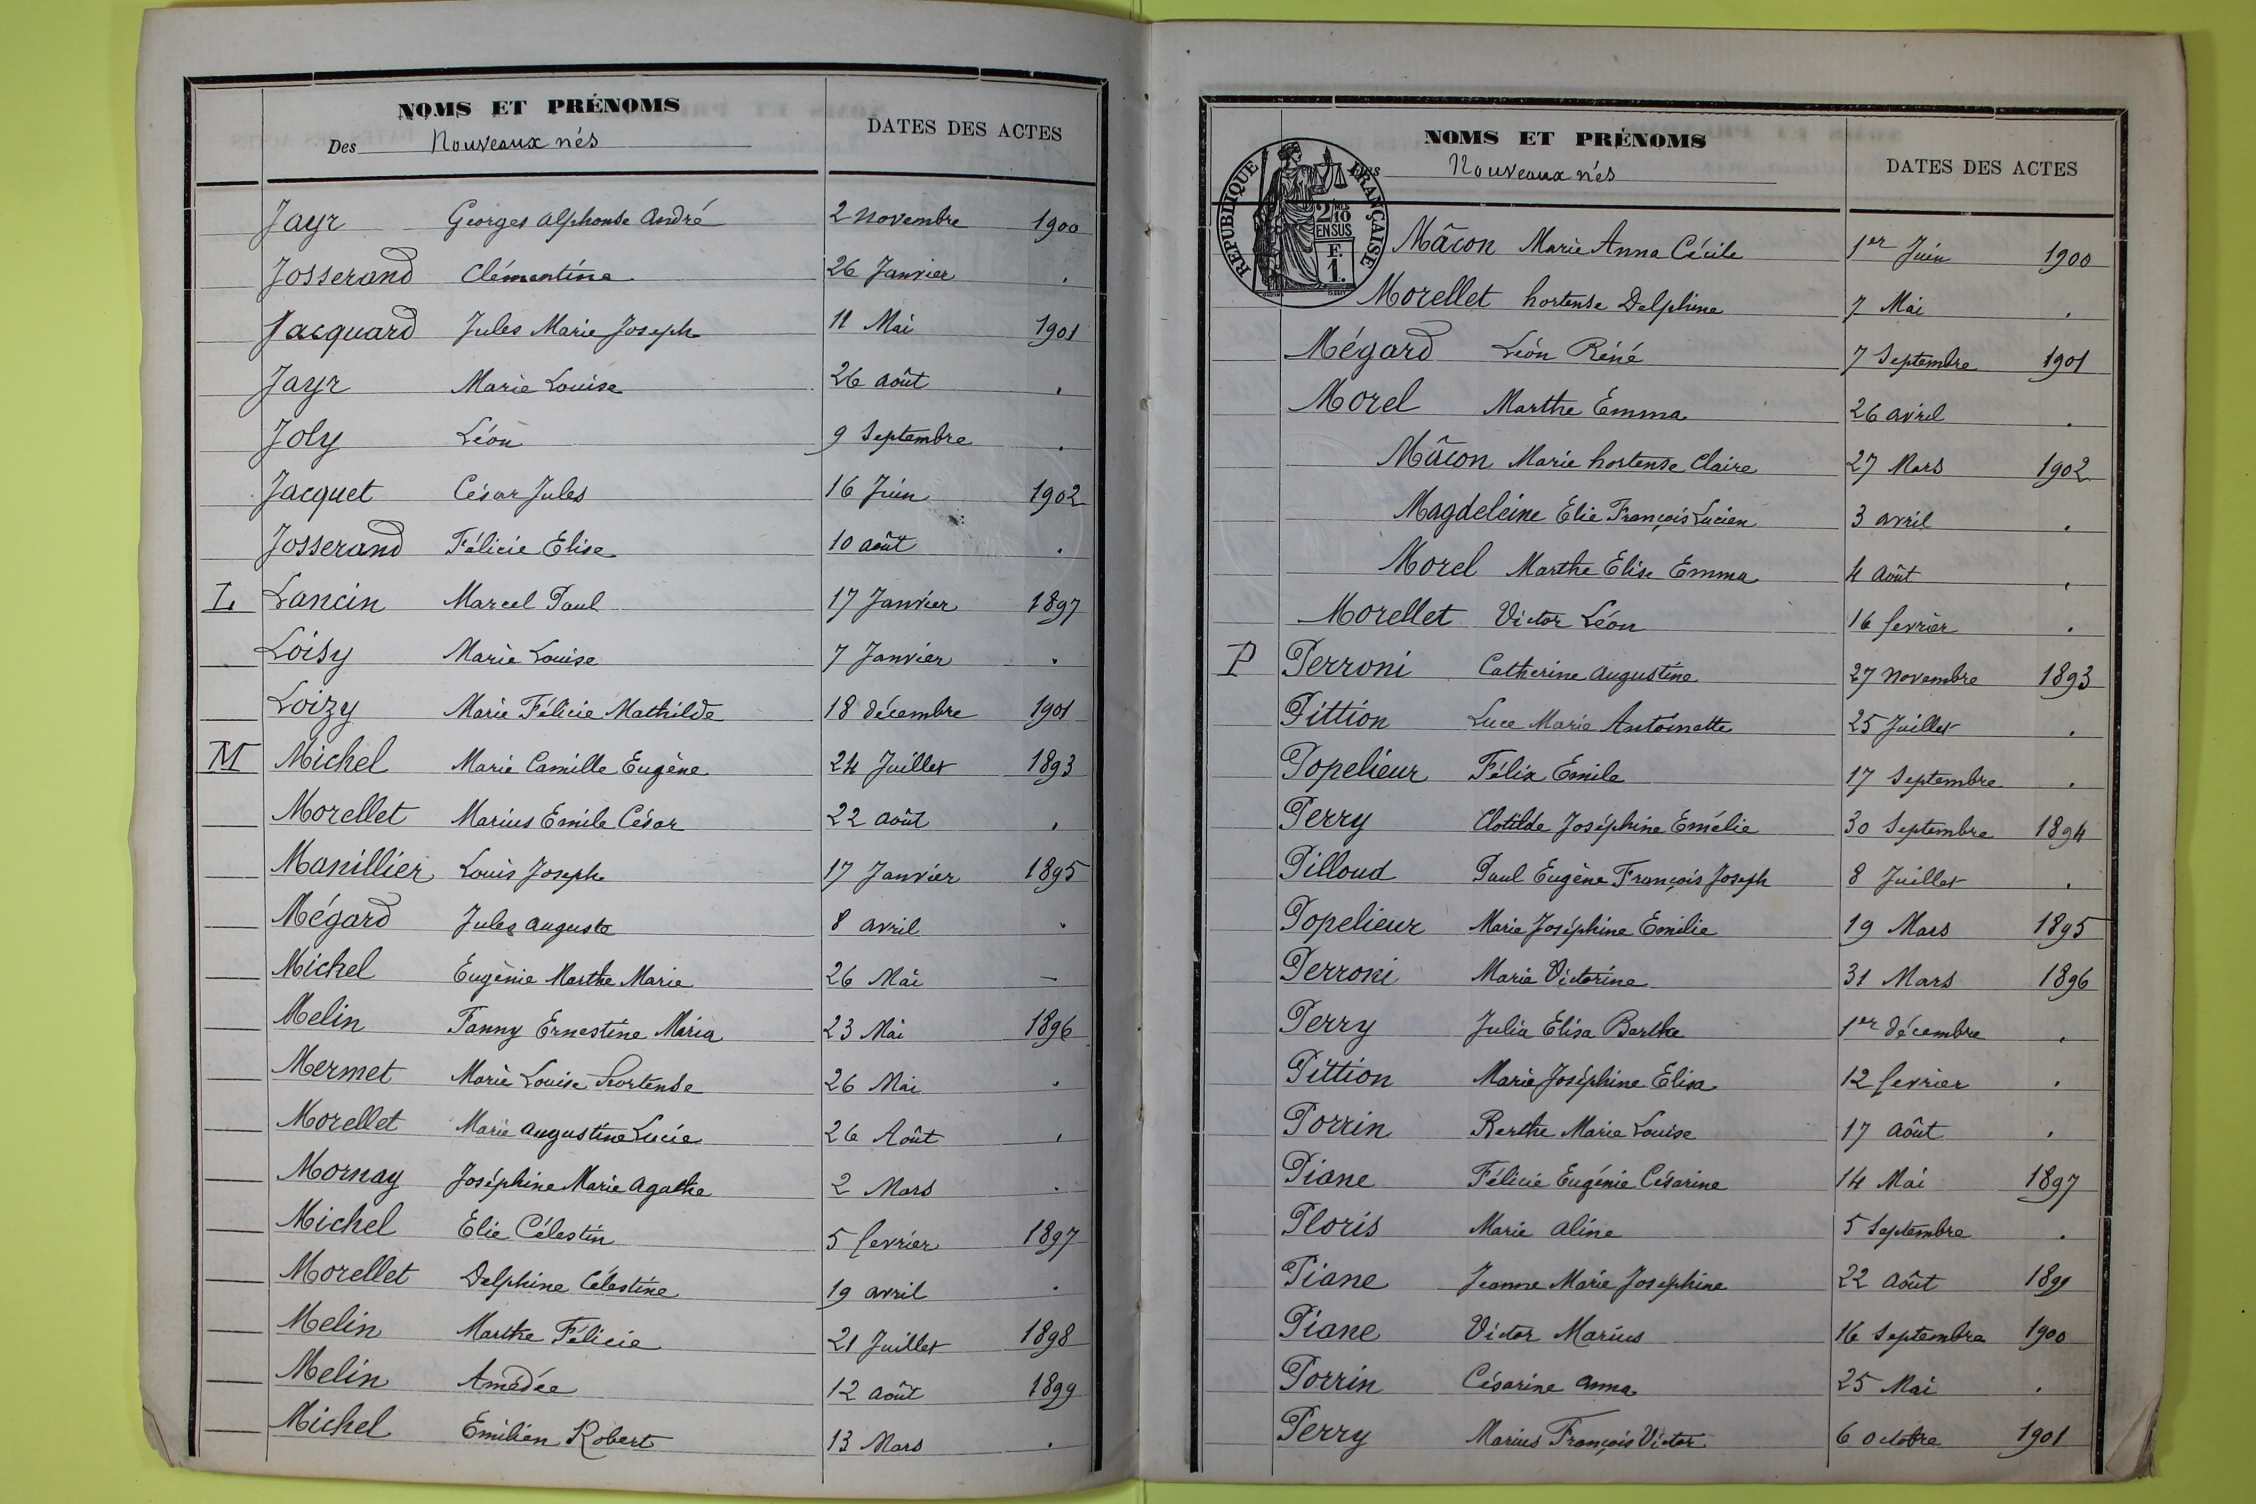 NOMS ET PRÉNOMS
Des Nouveaux nés
DATES DES ACTES
Jayr Georges Alphonse André 2 Novembre 1900
Josserand Clémentine 26 Janvier .
Jacquard Jules Marie Joseph 11 Mai 1901
Jayr Marie Louise 26 août .
Joly Léon 9 Septembre .
Jacquet César Jules 16 Juin 1902
Josserand Félicie Elise 10 août .
L Lancin Marcel Paul 17 Janvier 1897
Loisy Marie Louise 7 Janvier .
Loizy Marie Félicie Mathilde 18 décembre 1901
M Michel Marie Camille Eugène 24 Juillet 1893
Morellet Marius Emile César 22 août .
Manillier Louis Joseph 17 Janvier 1895
Mégard Jules Auguste 8 avril .
Michel Eugènie Marthe Marie 26 Mai —
Melin Fanny Ernestine Maria 23 Mai 1896
Mermet Marie Louise Hortense 26 Mai .
Morellet Marie Augustine Lucie 26 Août .
Mornay Joséphine Marie Agathe 2 Mars .
Michel Elie Célestin 5 fevrier 1897
Morellet Delphine Célestine 19 avril .
Melin Marthe Félicie 21 Juillet 1898
Melin Amédée 12 août 1899
Michel Emilien Robert 13 Mars .
NOMS ET PRÉNOMS
des Nouveaux nés
DATES DES ACTES
RÉPUBLIQUE FRANÇAISE
2/10
EN SUS
F.
1.
Mâcon Marie Anna Cécile 1er Juin 1900
Morellet hortense Delphine 7 Mai .
Mégard Léon Réné 7 Septembre 1901
Morel Marthe Emma 26 avril .
Mâcon Marie hortense Claire 27 Mars 1902
Magdeleine Elie François Lucien 3 avril .
Morel Marthe Elise Emma 4 Août .
Morellet Victor Léon 16 fevrier .
P Perroni Catherine Augustine 27 Novembre 1893
Pittion Luce Marie Antoinette 25 Juillet .
Popelieur Félix Emile 17 Septembre .
Perry Clotilde Joséphine Emélie 30 Septembre 1894
Pilloud Paul Eugène François Joseph 8 Juillet .
Popelieur Marie Joséphine Emilie 19 Mars 1895
Perroni Marie Victorine 31 Mars 1896
Perry Julia Elisa Berthe 1er décembre .
Pittion Marie Joséphine Elisa 12 fevrier .
Porrin Berthe Marie Louise 17 Août .
Piane Félicie Eugénie Césarine 14 Mai 1897
Ploris Marie Aline 5 Septembre .
Piane Jeanne Marie Josephine 22 Août 1899
Piane Victor Marius 16 Septembre 1900
Porrin Césarine Anna 25 Mai .
Perry Marius François Victor 6 octobre 1901